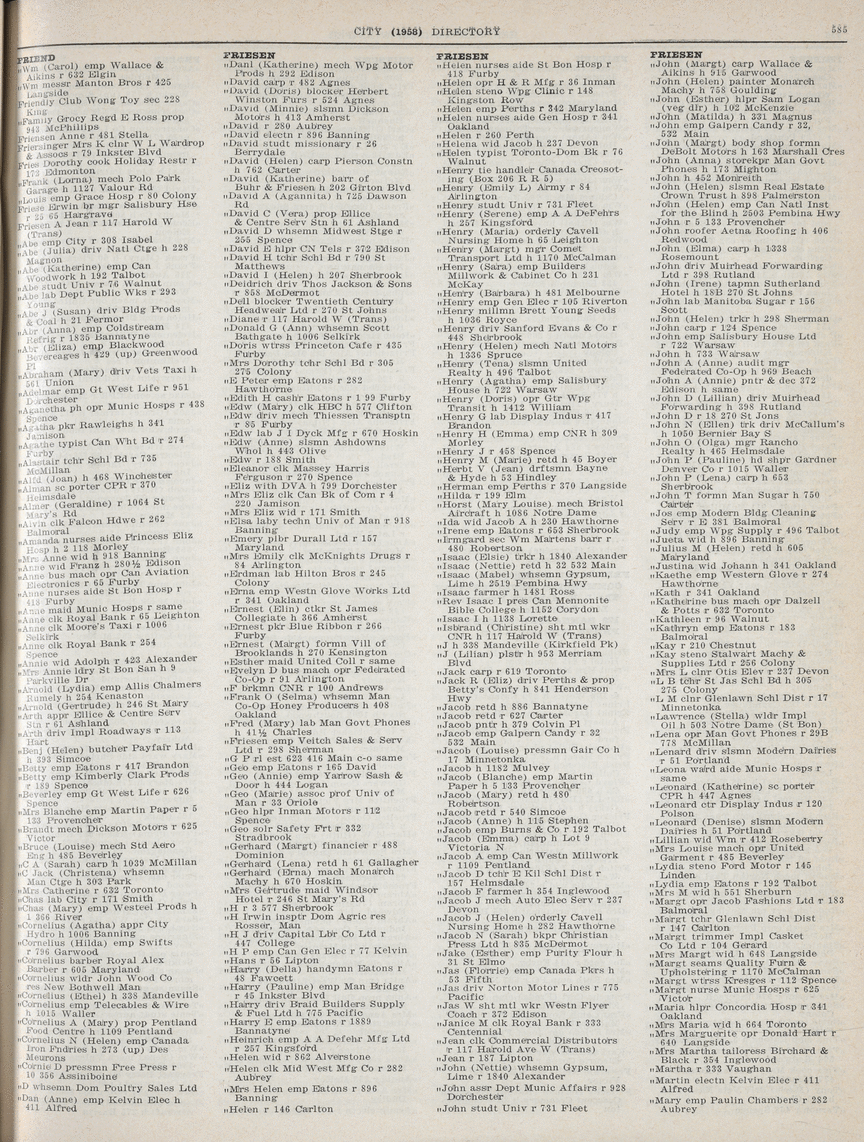 CITY (1958) DIRECTORY
585
FRIEND
„Wm (Carol) emp Wallace &
Aikins r 632 Elgin
„Wm messr Manton Bros r 425
Langside
Friendly Club Wong Toy sec 228
King
„Family Grocy Regd E Ross prop
943 McPhillips
Friensen Anne r 481 Stella
Friersinger Mrs K clnr W L Wardrop
& Assocs r 79 Inkster Blvd
Fries Dorothy cook Holiday Restr r
173 Edmonton
„Frank (Lorna) mech Polo Park
Garage h 1127 Valour Rd
„Louis emp Grace Hosp r 80 Colony
Friese Erwin br mgr Salisbury Hse
r 25 65 Hargrave
Friesen A Jean r 117 Harold W
(Trans)
„Abe emp City r 308 Isabel
„Abe (Julia) driv Natl Ctge h 228
Magnon
„Abe (Katherine) emp Can
Woodwork h 192 Talbot
„Abe studt Univ r 76 Walnut
„Abe lab Dept Public Wks r 293
Young
„Abe J (Susan) driv Bldg Prods
& Coal h 21 Fermor
„Abr (Anna) emp Coldstream
Refrig r 1835 Bannatyne
„Abr (Eliza) emp Blackwood
Beverages h 429 (up) Greenwood
Pl
„Abraham (Mary) driv Vets Taxi h
561 Union
„Adelmar emp Gt West Life r 951
Dorchester
„Aganetha ph opr Munic Hosps r 438
Spence
„Agatha pkr Rawleighs h 341
Jamison
„Agathe typist Can Wht Bd r 274
Furby
„Alastair tchr Schl Bd r 735
McMillan
„Alfd (Joan) h 468 Winchester
„Alman sc porter CPR r 370
Helmsdale
„Almer (Geraldine) r 1064 St
Mary's Rd
„Alvin clk Falcon Hdwe r 262
Balmoral
„Amanda nurses aide Princess Eliz
Hosp h 2 118 Morley
„Mrs Anne wid h 918 Banning
„Anne wid Franz h 280½ Edison
„Anne bus mach opr Can Aviation
Electronics r 65 Furby
„Anne nurses aide St Bon Hosp r
418 Furby
„Anne maid Munic Hosps r same
„Anne clk Royal Bank r 65 Leighton
„Anne clk Moore's Taxi r 1006
Selkirk
„Anne clk Royal Bank r 254
Spence
„Annie wid Adolph r 423 Alexander
„Mrs Annie ldry St Bon San h 9
Parkville Dr
„Arnold (Lydia) emp Allis Chalmers
Rumely h 254 Kenaston
„Arnold (Gertrude) h 246 St Mary
„Arth appr Ellice & Centre Serv
Stn r 61 Ashland
„Arth driv Impl Roadways r 113
Hart
„Benj (Helen) butcher Payfair Ltd
h 393 Simcoe
„Betty emp Eatons r 417 Brandon
„Betty emp Kimberly Clark Prods
r 189 Spence
„Beverley emp Gt West Life r 626
Spence
„Mrs Blanche emp Martin Paper r 5
133 Provencher
„Brandt mech Dickson Motors r 625
Victor
„Bruce (Louise) mech Std Aero
Eng h 485 Beverley
„C A (Sarah) carp h 1039 McMillan
„C Jack (Christena) whsemn
Man Ctge h 303 Park
„Mrs Catherine r 632 Toronto
„Chas lab City r 171 Smith
„Chas (Mary) emp Westeel Prods h
1 366 River
„Cornelius (Agatha) appr City
Hydro h 1006 Banning
„Cornelius (Hilda) emp Swifts
r 796 Garwood
„Cornelius barber Royal Alex
Barber r 605 Maryland
„Cornelius widr John Wood Co
res New Bothwell Man
„Cornelius (Ethel) h 338 Mandeville
„Cornelius emp Telecables & Wire
h 1015 Waller
„Cornelius A (Mary) prop Pentland
Food Centre h 1109 Pentland
„Cornelius N (Helen) emp Canada
Iron Fndries h 273 (up) Des
Meurons
„Cornie D pressmn Free Press r
10 356 Assiniboine
„D whsemn Dom Poultry Sales Ltd
„Dan (Anne) emp Kelvin Elec h
411 Alfred
FRIESEN
„Danl (Katherine) mech Wpg Motor
Prods h 292 Edison
„David carp r 482 Agnes
„David (Doris) blocker Herbert
Winston Furs r 524 Agnes
„David (Minnie) slsmn Dickson
Motors h 413 Amherst
„David r 280 Aubrey
„David electn r 896 Banning
„David studt missionary r 26
Berrydale
„David (Helen) carp Pierson Constn
h 762 Carter
„David (Katherine) barr of
Buhr & Friesen h 202 Girton Blvd
„David A (Agannitha) h 725 Dawson
Rd
„David C (Vera) prop Ellice
& Centre Serv Stn h 61 Ashland
„David D whsemn Midwest Stge r
255 Spence
„David E hlpr CN Tels r 372 Edison
„David H tchr Schl Bd r 790 St
Matthews
„David I (Helen) h 207 Sherbrook
„Deidrich driv Thos Jackson & Sons
r 858 McDermot
„Dell blocker Twentieth Century
Headwear Ltd r 270 St Johns
„Diane r 117 Harold W (Trans)
„Donald G (Ann) whsemn Scott
Bathgate h 1006 Selkirk
„Doris wtrss Princeton Cafe r 435
Furby
„Mrs Dorothy tchr Schl Bd r 305
275 Colony
„E Peter emp Eatons r 282
Hawthorne
„Edith H cashr Eatons r 1 99 Furby
„Edw (Mary) clk HBC h 577 Clifton
„Edw driv mech Thiessen Transptn
r 85 Furby
„Edw lab J I Dyck Mfg r 670 Hoskin
„Edw (Anne) slsmn Ashdowns
Whol h 443 Olive
„Edw r 188 Smith
„Eleanor clk Massey Harris
Ferguson r 270 Spence
„Eliz with DVA h 799 Dorchester
„Mrs Eliz clk Can Bk of Com r 4
220 Jamison
„Mrs Eliz wid r 171 Smith
„Elsa laby techn Univ of Man r 918
Banning
„Emery plbr Durall Ltd r 157
Maryland
„Mrs Emily clk McKnights Drugs r
84 Arlington
„Erdman lab Hilton Bros r 245
Colony
„Erna emp Westn Glove Works Ltd
r 341 Oakland
„Ernest (Elin) ctkr St James
Collegiate h 366 Amherst
„Ernest pkr Blue Ribbon r 266
Furby
„Ernest (Margt) formn Vill of
Brooklands h 270 Kensington
„Esther maid United Coll r same
„Evelyn D bus mach opr Federated
Co-Op r 91 Arlington
„F brkmn CNR r 100 Andrews
„Frank O (Selma) whsemn Man
Co-Op Honey Producers h 408
Oakland
„Fred (Mary) lab Man Govt Phones
h 41½ Charles
„Friesen emp Veitch Sales & Serv
Ltd r 298 Sherman
„G P rl est 623 416 Main c-o same
„Geo emp Eatons r 165 David
„Geo (Annie) emp Yarrow Sash &
Door h 444 Logan
„Geo (Marie) assoc prof Univ of
Man r 33 Oriole
„Geo hlpr Inman Motors r 112
Spence
„Geo solr Safety Frt r 332
Stradbrook
„Gerhard (Margt) financier r 488
Dominion
„Gerhard (Lena) retd h 61 Gallagher
„Gerhard (Erna) mach Monarch
Machy h 670 Hoskin
„Mrs Gertrude maid Windsor
Hotel r 246 St Mary's Rd
„H r 3 577 Sherbrook
„H Irwin insptr Dom Agric res
Rosser, Man
„H J driv Capital Lbr Co Ltd r
447 College
„H P emp Can Gen Elec r 77 Kelvin
„Hans r 56 Lipton
„Harry (Della) handymn Eatons r
48 Fawcett
„Harry (Pauline) emp Man Bridge
r 45 Inkster Blvd
„Harry driv Braid Builders Supply
& Fuel Ltd h 775 Pacific
„Harry E emp Eatons r 1889
Bannatyne
„Heinrich emp A A Defehr Mfg Ltd
r 257 Kingsford
„Helen wid r 862 Alverstone
„Helen clk Mid West Mfg Co r 282
Aubrey
„Mrs Helen emp Eatons r 896
Banning
„Helen r 146 Carlton
FRIESEN
„Helen nurses aide St Bon Hosp r
418 Furby
„Helen opr H & R Mfg r 36 Inman
„Helen steno Wpg Clinic r 148
Kingston Row
„Helen emp Perths r 342 Maryland
„Helen nurses aide Gen Hosp r 341
Oakland
„Helen r 260 Perth
„Helena wid Jacob h 237 Devon
„Helen typist Toronto-Dom Bk r 76
Walnut
„Henry tie handler Canada Creosot-
ing (Box 206 R R 5)
„Henry (Emily L) Army r 84
Arlington
„Henry studt Univ r 731 Fleet
„Henry (Serene) emp A A DeFehrs
h 257 Kingsford
„Henry (Maria) orderly Cavell
Nursing Home h 65 Leighton
„Henry (Margt) mgr Comet
Transport Ltd h 1170 McCalman
„Henry (Sara) emp Builders
Millwork & Cabinet Co h 231
McKay
„Henry (Barbara) h 481 Melbourne
„Henry emp Gen Elec r 105 Riverton
„Henry millmn Brett Young Seeds
h 1036 Royce
„Henry driv Sanford Evans & Co r
448 Sherbrook
„Henry (Helen) mech Natl Motors
h 1336 Spruce
„Henry (Tena) slsmn United
Realty h 496 Talbot
„Henry (Agatha) emp Salisbury
House h 722 Warsaw
„Henry (Doris) opr Gtr Wpg
Transit h 1412 William
„Henry G lab Display Indus r 417
Brandon
„Henry H (Emma) emp CNR h 309
Morley
„Henry J r 458 Spence
„Henry M (Marie) retd h 45 Boyer
„Herbt V (Jean) drftsmn Bayne
& Hyde h 53 Hindley
„Herman emp Perths r 370 Langside
„Hilda r 199 Elm
„Horst (Mary Louise) mech Bristol
Aircraft h 1086 Notre Dame
„Ida wid Jacob A h 230 Hawthorne
„Irene emp Eatons r 653 Sherbrook
„Irmgard sec Wm Martens barr r
480 Robertson
„Isaac (Elsie) trkr h 1840 Alexander
„Isaac (Nettie) retd h 32 532 Main
„Isaac (Mabel) whsemn Gypsum,
Lime h 2519 Pembina Hwy
„Isaac farmer h 1481 Ross
„Rev Isaac I pres Can Mennonite
Bible College h 1152 Corydon
„Isaac I h 1138 Lorette
„Isbrand (Christine) sht mtl wkr
CNR h 117 Harold W (Trans)
„J h 338 Mandeville (Kirkfield Pk)
„J (Lilian) plstr h 953 Merriam
Blvd
„Jack carp r 619 Toronto
„Jack R (Eliz) driv Perths & prop
Betty's Confy h 841 Henderson
Hwy
„Jacob retd h 886 Bannatyne
„Jacob retd r 627 Carter
„Jacob pntr h 379 Colvin Pl
„Jacob emp Galpern Candy r 32
532 Main
„Jacob (Louise) pressmn Gair Co h
17 Minnetonka
„Jacob h 1182 Mulvey
„Jacob (Blanche) emp Martin
Paper h 5 133 Provencher
„Jacob (Mary) retd h 480
Robertson
„Jacob retd r 540 Simcoe
„Jacob (Anne) h 115 Stephen
„Jacob emp Burns & Co r 192 Talbot
„Jacob (Emma) carp h Lot 9
Victoria N
„Jacob A emp Can Westn Millwork
r 1109 Pentland
„Jacob D tchr E Kil Schl Dist r
157 Helmsdale
„Jacob F farmer h 354 Inglewood
„Jacob J mech Auto Elec Serv r 237
Devon
„Jacob J (Helen) orderly Cavell
Nursing Home h 282 Hawthorne
„Jacob N (Sarah) bkpr Christian
Press Ltd h 835 McDermot
„Jake (Esther) emp Purity Flour h
31 St Elmo
„Jas (Florrie) emp Canada Pkrs h
53 Fifth
„Jas driv Norton Motor Lines r 775
Pacific
„Jas W sht mtl wkr Westn Flyer
Coach r 372 Edison
„Janice M clk Royal Bank r 333
Centennial
„Jean clk Commercial Distributors
r 117 Harold Ave W (Trans)
„Jean r 187 Lipton
„John (Nettie) whsemn Gypsum,
Lime r 1840 Alexander
„John assr Dept Munic Affairs r 928
Dorchester
„John studt Univ r 731 Fleet
FRIESEN
„John (Margt) carp Wallace &
Aikins h 915 Garwood
„John (Helen) painter Monarch
Machy h 758 Goulding
„John (Esther) hlpr Sam Logan
(veg dlr) h 102 McKenzie
„John (Matilda) h 331 Magnus
„John emp Galpern Candy r 32,
532 Main
„John (Margt) body shop formn
DeBolt Motors h 163 Marshall Cres
„John (Anna) storekpr Man Govt
Phones h 173 Mighton
„John h 452 Montreith
„John (Helen) slsmn Real Estate
Crown Trust h 898 Palmerston
„John (Helen) emp Can Natl Inst
for the Blind h 2503 Pembina Hwy
„John r 5 133 Provencher
„John roofer Aetna Roofing h 406
Redwood
„John (Elma) carp h 1338
Rosemount
„John driv Muirhead Forwarding
Ltd r 398 Rutland
„John (Irene) tapmn Sutherland
Hotel h 18B 270 St Johns
„John lab Manitoba Sugar r 156
Scott
„John (Helen) trkr h 298 Sherman
„John carp r 124 Spence
„John emp Salisbury House Ltd
r 722 Warsaw
„John h 733 Warsaw
„John A (Anne) audit mgr
Federated Co-Op h 969 Beach
„John A (Annie) pntr & dec 372
Edison h same
„John D (Lillian) driv Muirhead
Forwarding h 398 Rutland
„John D r 18 270 St Jons
„John N (Ellen) trk driv McCallum's
h 1050 Bernier Bay S
„John O (Olga) mgr Rancho
Realty h 465 Helmsdale
„John P (Pauline) hd shpr Gardner
Denver Co r 1015 Waller
„John P (Lena) carp h 653
Sherbrook
„John T formn Man Sugar h 750
Carter
„Jos emp Modern Bldg Cleaning
Serv r E 381 Balmoral
„Judy emp Wpg Supply r 496 Talbot
„Justa wid h 896 Banning
„Julius M (Helen) retd h 605
Maryland
„Justina wid Johann h 341 Oakland
„Kaethe emp Western Glove r 274
Hawthorne
„Kath r 341 Oakland
„Katherine bus mach opr Dalzell
& Potts r 632 Toronto
„Kathleen r 96 Walnut
„Kathryn emp Eatons r 183
Balmoral
„Kay r 210 Chestnut
„Kay steno Stalwart Machy &
Supplies Ltd r 256 Colony
„Mrs L clnr Otis Elev r 237 Devon
„L B tchr St Jas Schl Bd h 305
275 Colony
„L M clnr Glenlawn Schl Dist r 17
Minnetonka
„Lawrence (Stella) wldr Impl
Oil h 503 Notre Dame (St Bon)
„Lena opr Man Govt Phones r 29B
778 McMillan
„Lenard driv slsmn Modern Dairies
r 51 Portland
„Leona ward aide Munic Hosps r
same
„Leonard (Katherine) sc porter
CPR h 447 Agnes
„Leonard ctr Display Indus r 120
Polson
„Leonard (Denise) slsmn Modern
Dairies h 51 Portland
„Lillian wid Wm r 412 Roseberry
„Mrs Louise mach opr United
Garment r 485 Beverley
„Lydia steno Ford Motor r 145
Linden
„Lydia emp Eatons r 192 Talbot
„Mrs M wid h 551 Sherburn
„Margt opr Jacob Fashions Ltd r 183
Balmoral
„Margt tchr Glenlawn Schl Dist
r 147 Carlton
„Margt trimmer Impl Casket
Co Ltd r 104 Gerard
„Mrs Margt wid h 648 Langside
„Margt seams Quality Furn &
Upholstering r 1170 McCalman
„Margt wtrss Kresges r 112 Spence
„Margt nurse Munic Hosps r 625
Victor
„Maria hlpr Concordia Hosp r 341
Oakland
„Mrs Maria wid h 664 Toronto
„Mrs Marguerite opr Donald Hart r
640 Langside
„Mrs Martha tailoress Birchard &
Black r 354 Inglewood
„Martha r 333 Vaughan
„Martin electn Kelvin Elec r 411
Alfred
„Mary emp Paulin Chambers r 282
Aubrey